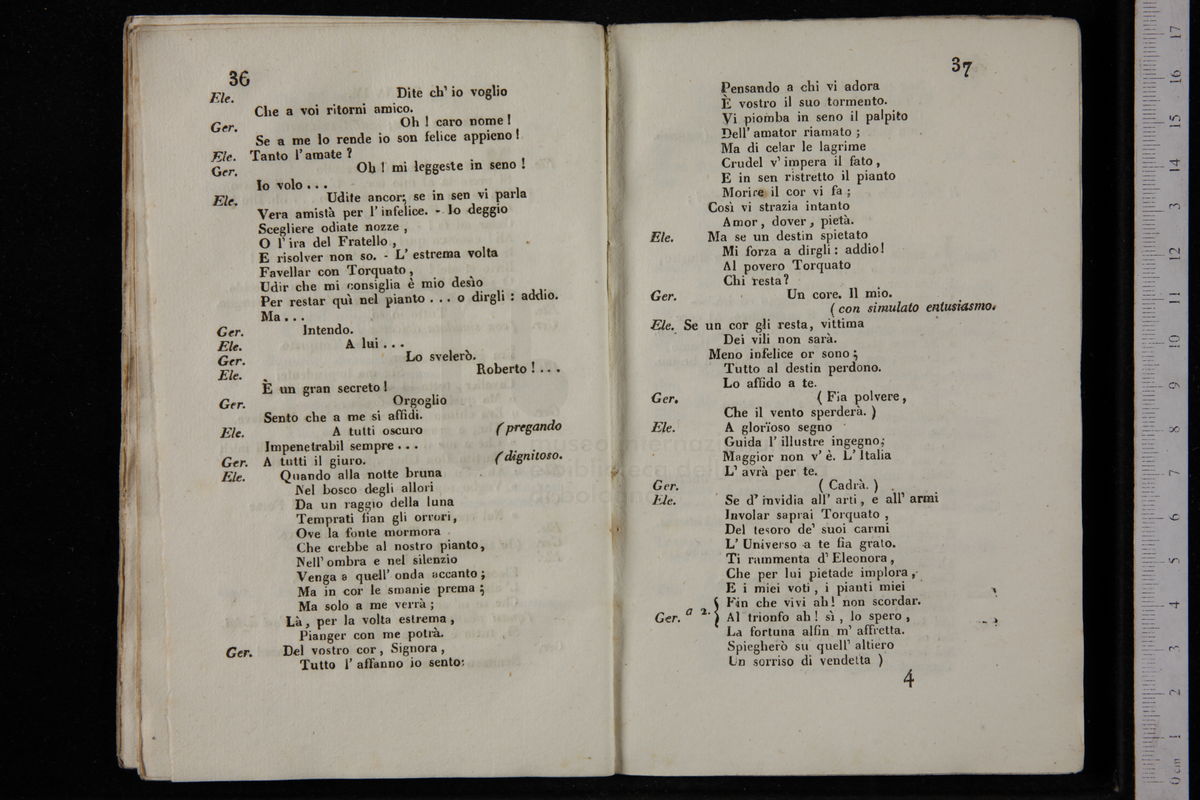 36
Ele. Dite ch' io voglio
Che a voi ritorni amico.
Ger. Oh ! caro nome !
Se a me lo rende io son felice appieno !
Ele. Tanto l' amate ?
Ger. Oh ! mi leggeste in seno !
Io volo . . .
Ele. Udite ancor; se in sen vi parla
Vera amistà per l' infelice. - Io deggio
Scegliere odiate nozze ,
O l' ira del Fratello ,
E risolver non so. - L' estrema volta
Favellar con Torquato ,
Udir che mi consiglia è mio desìo
Per restar quì nel pianto . . . o dirgli : addio.
Ma . . .
Ger. Intendo.
Ele. A lui . . .
Ger. Lo svelerò.
Ele. Roberto ! . . .
È un gran secreto !
Ger. Orgoglio
Sento che a me si affidi.
Ele. A tutti oscuro (pregando
Impenetrabil sempre . . .
Ger. A tutti il giuro. (dignitoso.
Ele. Quando alla notte bruna
Nel bosco degli allori
Da un raggio della luna
Temprati fian gli orrori,
Ove la fonte mormora
Che crebbe al nostro pianto,
Nell' ombra e nel silenzio
Venga a quell' onda accanto ;
Ma in cor le smanie prema ;
Ma solo a me verrà ;
Là , per la volta estrema ,
Pianger con me potrà.
Ger. Del vostro cor , Signora ,
Tutto l' affanno io sento:
37
Pensando a chi vi adora
È vostro il suo tormento.
Vi piomba in seno il palpito
Dell' amator riamato ;
Ma di celar le lagrime
Crudel v' impera il fato ,
E in sen ristretto il pianto
Morire il cor vi fa ;
Così vi strazia intanto
Amor , dover , pietà.
Ele. Ma se un destin spietato
Mi forza a dirgli : addio!
Al povero Torquato
Chi resta ?
Ger. Un core. Il mio.
( con simulato entusiasmo.
Ele. Se un cor gli resta, vittima
Dei vili non sarà.
Meno infelice or sono ;
Tutto al destin perdono.
Lo affido a te.
Ger. ( Fia polvere ,
Che il vento sperderà. )
Ele. A glorïoso segno
Guida l' illustre ingegno;
Maggior non v' è. L' Italia
L' avrà per te.
Ger. ( Cadrà. )
Ele. Se d' invidia all' arti , e all' armi
Involar saprai Torquato ,
Del tesoro de' suoi carmi
L' Universo a te fia grato.
Ti rammenta d' Eleonora ,
Che per lui pietade implora ,
E i miei voti , i pianti miei
Fin che vivi ah! non scordar.
Ger. a 2. Al trionfo ah ! sì , lo spero ,
La fortuna alfin m' affretta.
Spiegherò su quell' altiero
Un sorriso di vendetta )
4